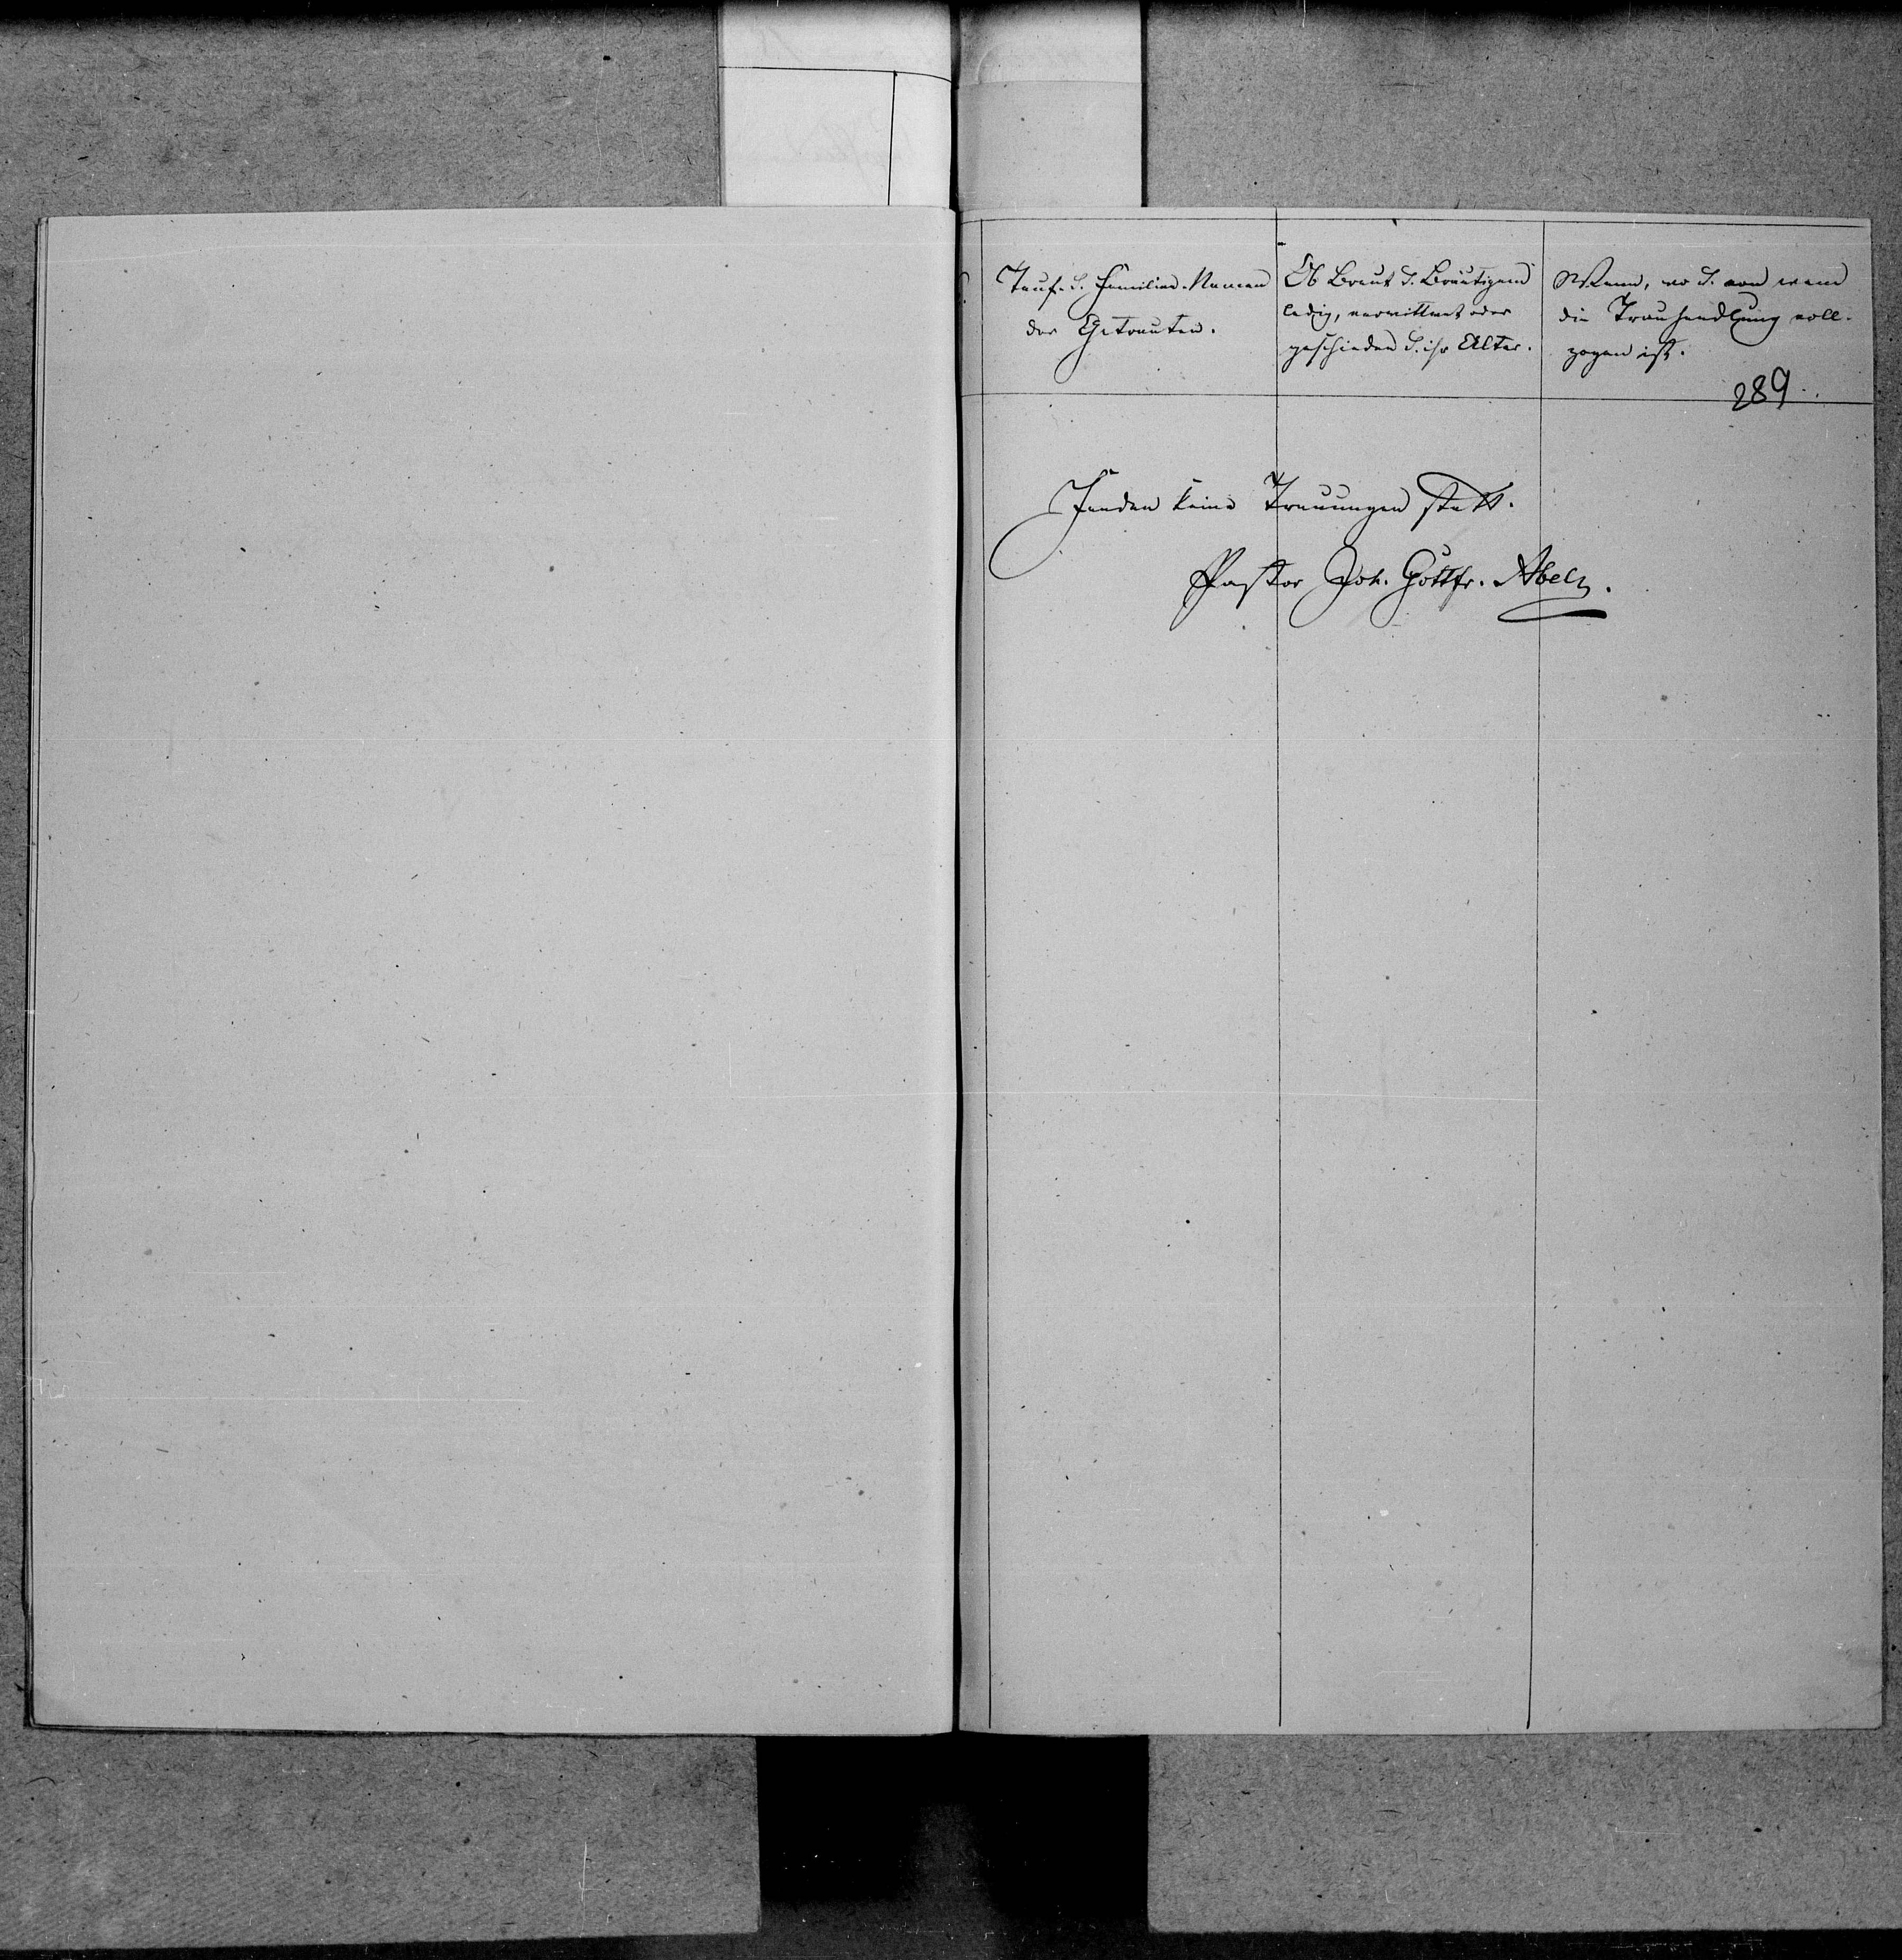 Tauf- u. Familien-Namen
der Getrauten.
Ob Braut u. Bräutigam
ledig, verwittwet oder
geschieden u. ihr Alter.
Wann, wo u. von wem
die Trauhandlung voll-
zogen ist.
289.
Fanden keine Trauungen statt.
Pastor Joh. Gottfr. Abel.